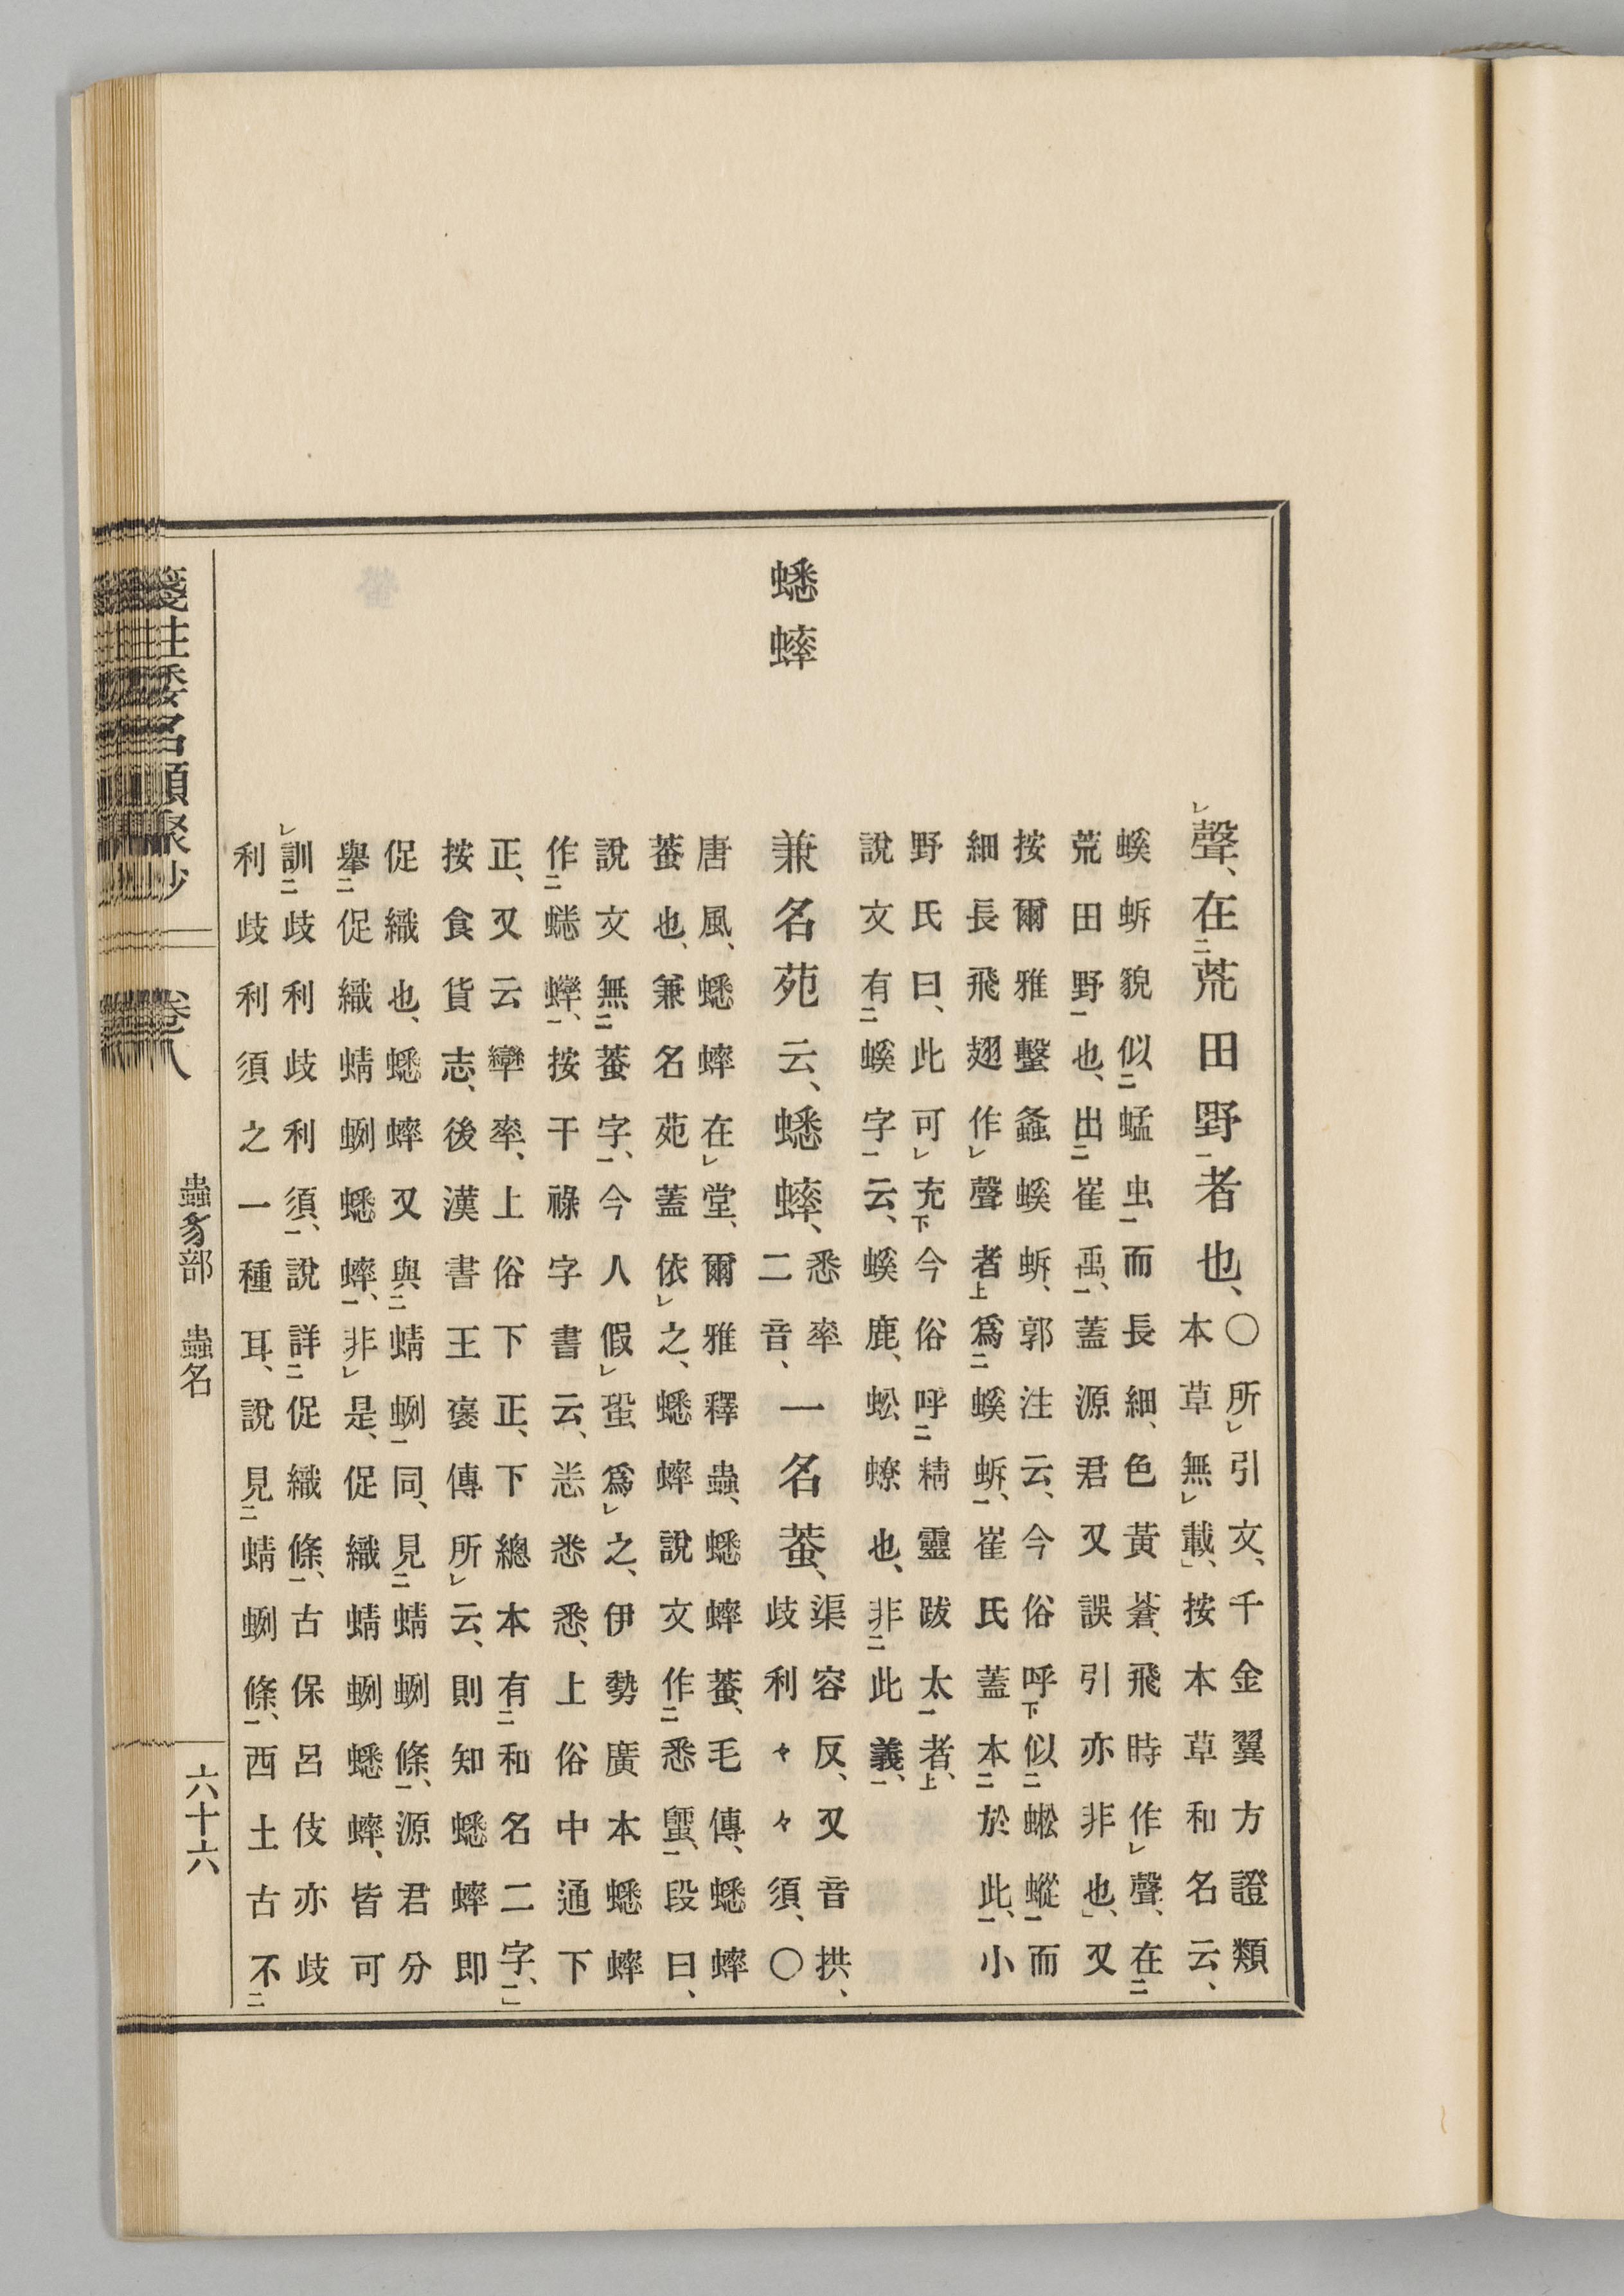 聲、在荒田野者也、
〇所引文、千金翼方證類
本草無載、按本草和名云、
螇蚸貌似蜢虫而長細、色黃蒼、飛時作聲、在
荒田野也、出崔禹、蓋源君又誤引亦非也、又
按爾雅蟿螽螇蚸、郭注云、今俗呼似蜙蜙而
細長飛翅作聲者爲螇蚸、崔氏蓋本於此、小
野氏曰、此可充今俗呼精靈跋太者、
說文有螇字云、螇鹿、蚣蟟也、非此義、
蟋蟀
兼名苑云、蟋蟀、
悉率
二音、
一名蛬、
渠容反、又音拱、
歧利々々須、〇
唐風、蟋蟀在堂、爾雅釋蟲、蟋蟀蛬、毛傳、蟋蟀
蛬也、兼名苑蓋依之、蟋蟀說文作悉𧗿、段曰、
說文無蛬字、今人假蛩爲之、伊勢廣本蟋蟀
作蟋蟀、按干祿字書云、悉悉、上俗中通下
正、又云率、上俗下正、下總本有和名二字、
按食貨志、後漢書王褒傳所云、則知蟋蟀即
促織也、蟋蟀又與蜻蛚同、見蜻蛚條、源君分
舉促織蜻蛚蟋蟀、非是、促織蜻蛚蟋蟀、皆可
訓歧利歧利須、說詳促織條、古保呂伎亦歧
利歧利須之一種耳、說見蜻蛚條、西土古不
箋注倭名類聚抄
卷八
蟲豸部 蟲名
六十六